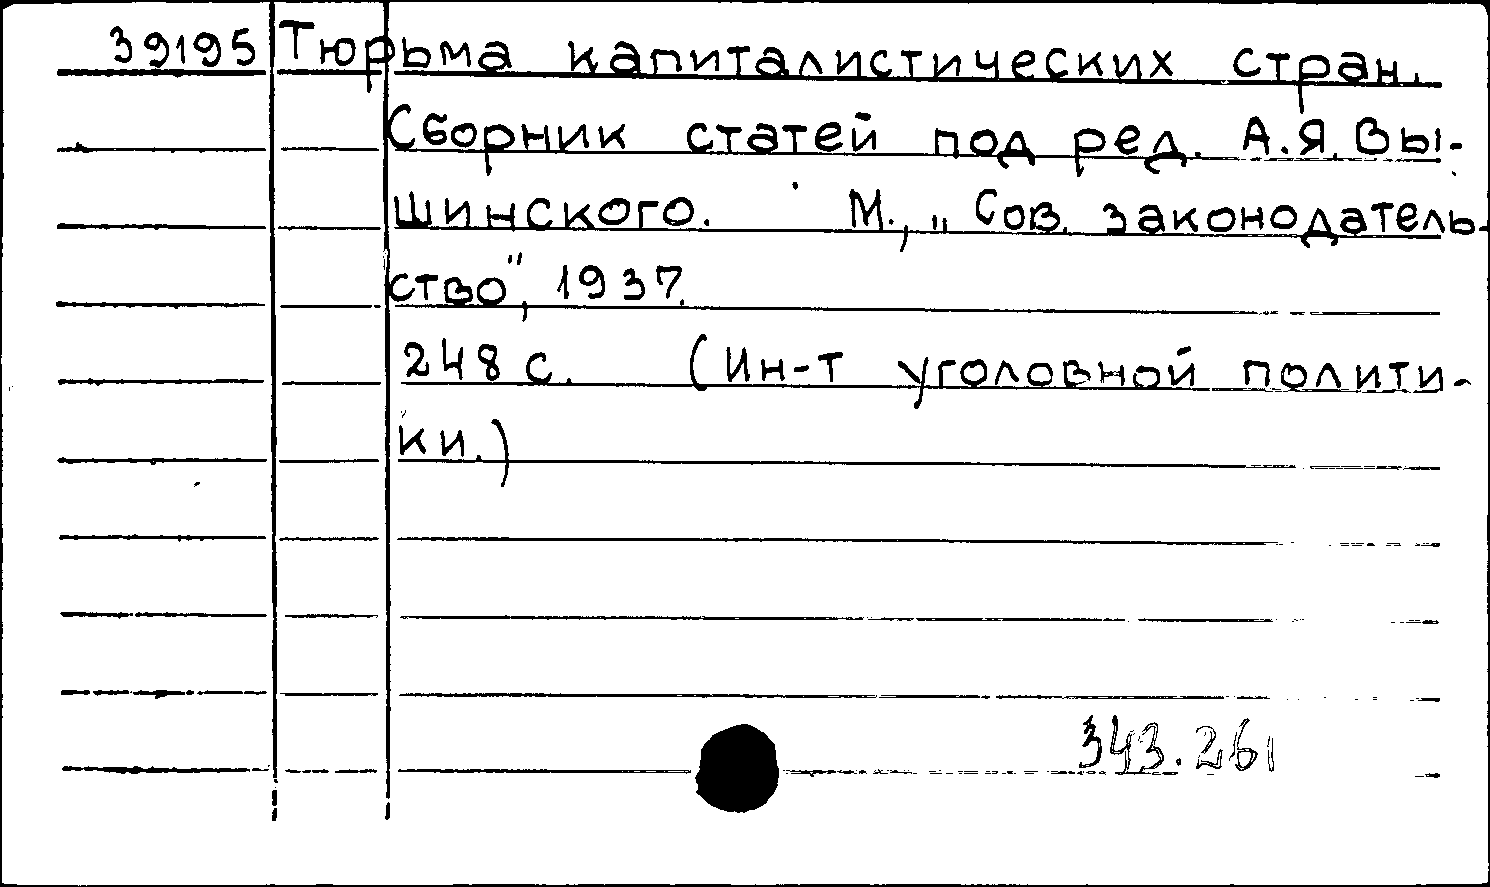 39195 Тюрьма капиталистических стран.
Сборник статей под ред. А.Я. Вы-
шинского. М., „Сов. законодатель-
ство", 1937.
248 с. (Ин-т уголовной полити-
ки.)
343.261